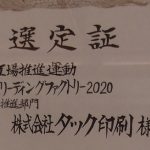 選定証
工場推進運動
リーディングファクトリー2020
推進部門
株式会社タック印刷 様